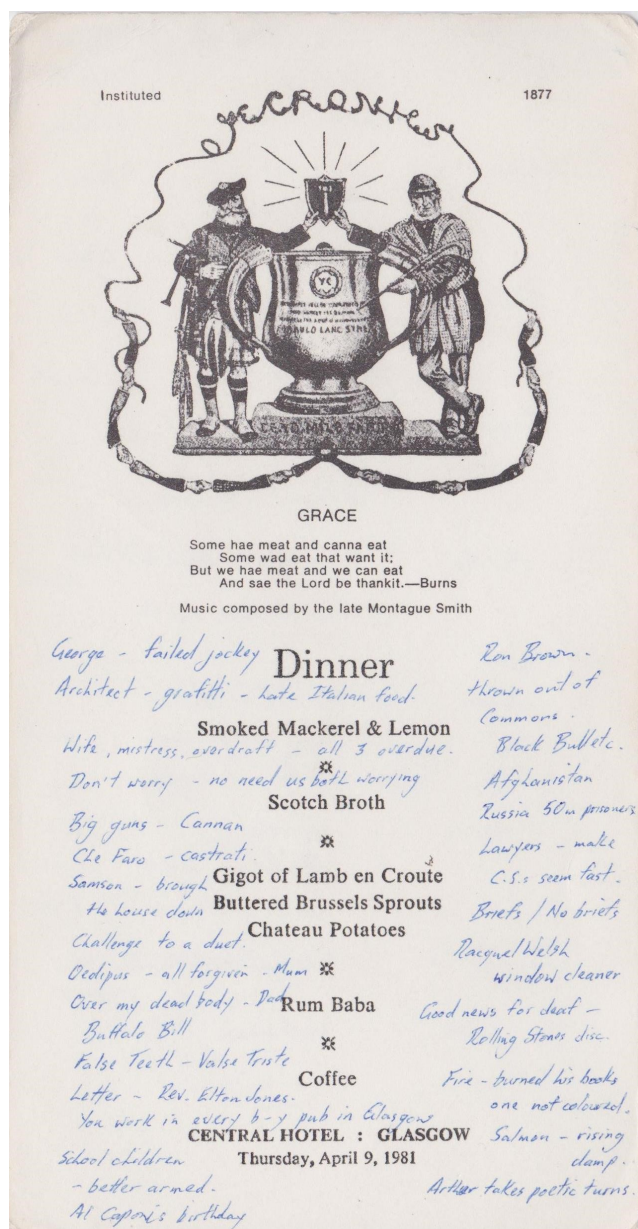 Instituted
1877
Ye CRONIES
YC
AULD LANG SYNE
CEAD MILE FAILTE
GRACE
Some hae meat and canna eat
Some wad eat that want it;
But we hae meat and we can eat
And sae the Lord be thankit.—Burns
Music composed by the late Montague Smith
Dinner
Smoked Mackerel & Lemon
Scotch Broth
Gigot of Lamb en Croute
Buttered Brussels Sprouts
Chateau Potatoes
Rum Baba
Coffee
CENTRAL HOTEL : GLASGOW
Thursday, April 9, 1981
George - failed jockey
Architect - grafitti - hate Italian food.
Wife, mistress, overdraft - all 3 overdue.
Don't worry - no need us both worrying
Big guns - Cannan
Che Faro - castrati.
Samson - brough
the house down
Challenge to a duet.
Oedipus - all forgiven - Mum
Over my dead body - Dad
Buffalo Bill
False Teeth - Valse Triste
Letter - Rev. Elton Jones.
You work in every b-y pub in Glasgow
School children
- better armed.
Al Capone's birthday
Ron Brown -
thrown out of
Commons.
Black Bull etc.
Afghanistan
Russia 50m prisoners
Lawyers - make
C.S.s seem fast.
Briefs / No briefs
Racquel Welsh
window cleaner
Good news for deaf -
Rolling Stones disc.
Fire - burned his books
one not coloured.
Salmon - rising
damp.
Arthur takes poetic turns.